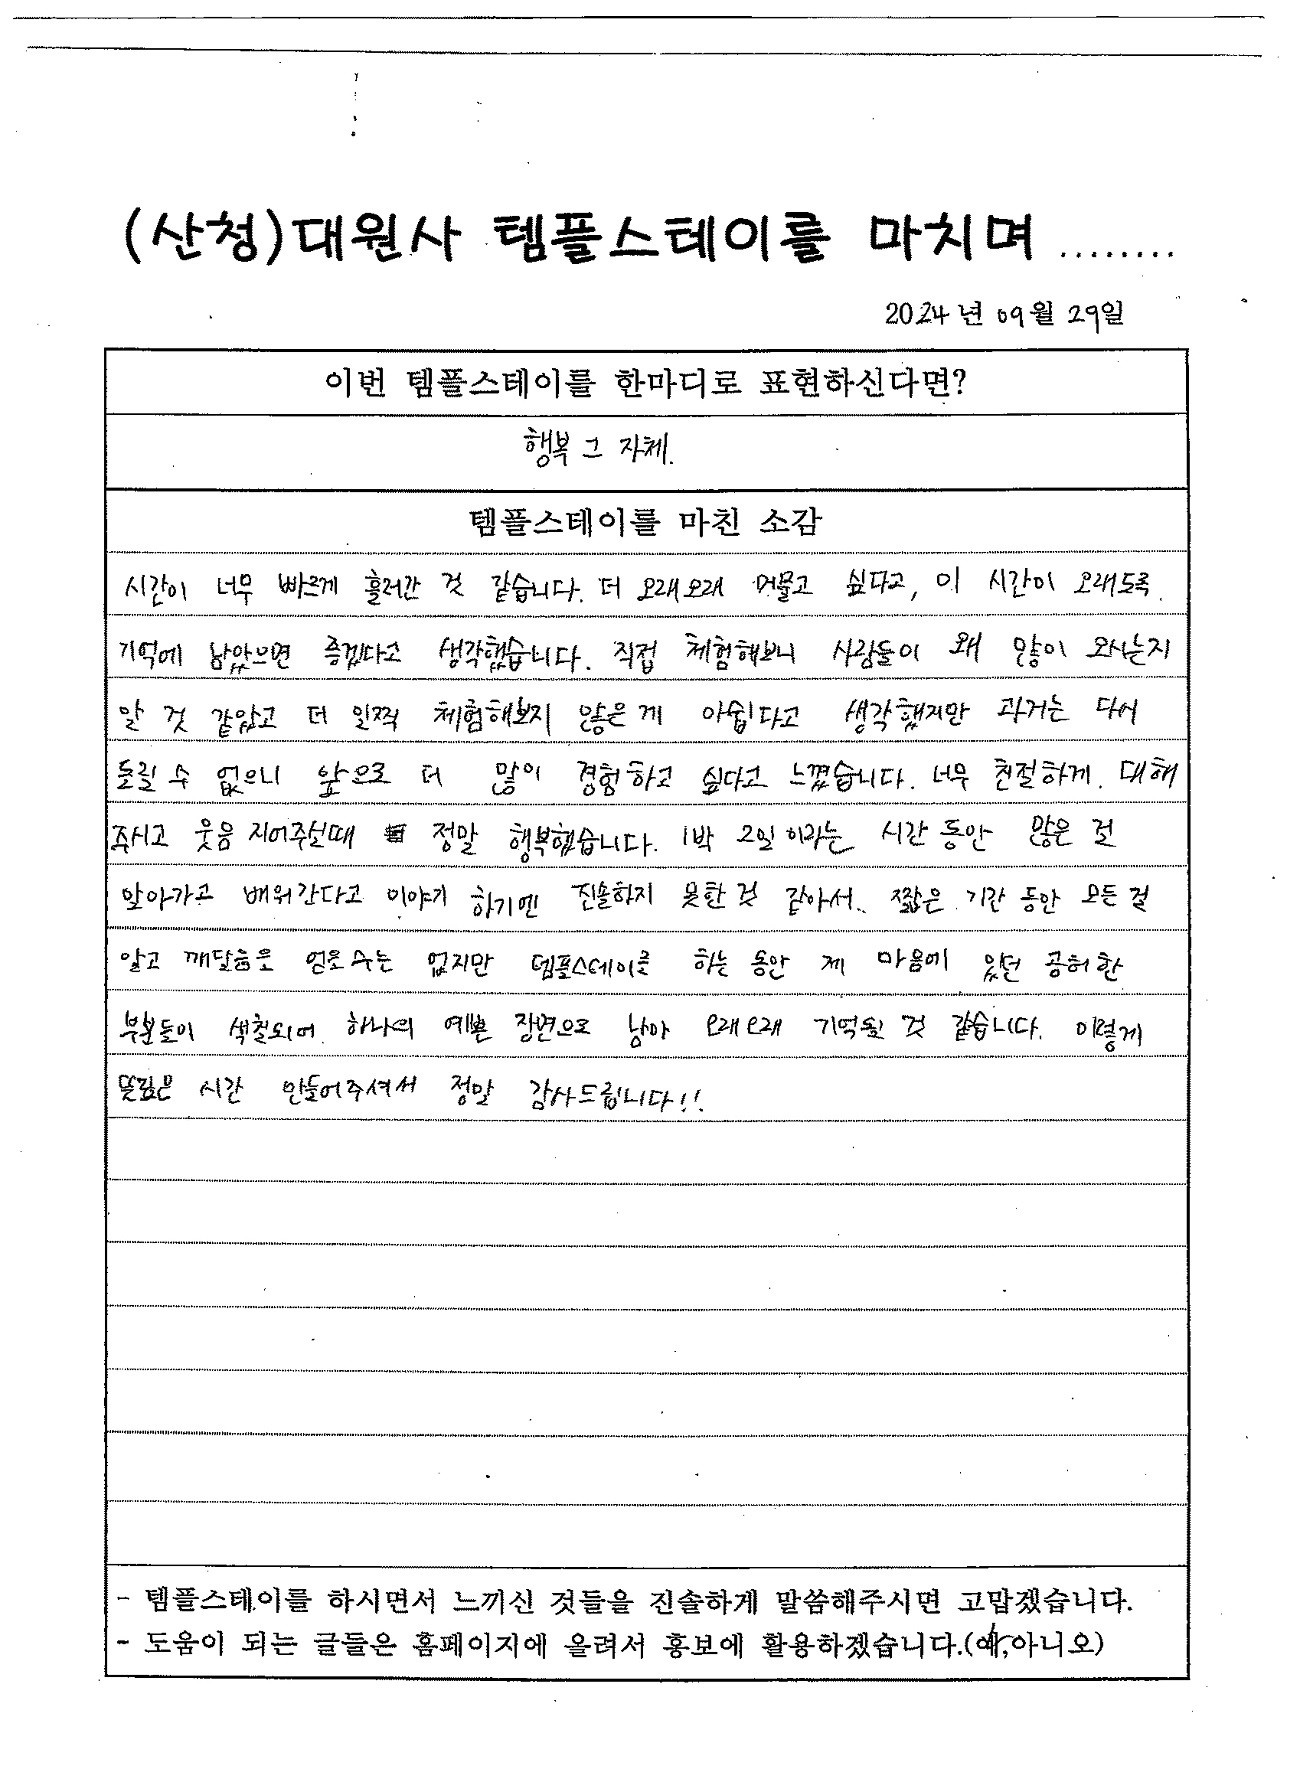 (산청)대원사 템플스테이를 마치며 ........
2024년 09월 29일
이번 템플스테이를 한마디로 표현하신다면?
행복 그 자체.
템플스테이를 마친 소감
시간이 너무 빠르게 흘러간 것 같습니다. 더 오래오래 머물고 싶다고, 이 시간이 오래도록
기억에 남았으면 좋겠다고 생각했습니다. 직접 체험해보니 사람들이 왜 많이 오시는지
알 것 같았고 더 일찍 체험해보지 않은 게 아쉽다고 생각했지만 과거는 다시
돌릴 수 없으니 앞으로 더 많이 경험하고 싶다고 느꼈습니다. 너무 친절하게 대해
주시고 웃음 지어주실때 정말 행복했습니다. 1박 2일이라는 시간 동안 많은 걸
알아가고 배워간다고 이야기 하기엔 진솔하지 못한 것 같아서. 짧은 기간 동안 모든 걸
알고 깨달음을 얻을수는 없지만 템플스테이를 하는 동안 제 마음에 있던 공허한
부분들이 색칠되어 하나의 예쁜 장면으로 남아 오래오래 기억될 것 같습니다. 이렇게
뜻깊은 시간 만들어주셔서 정말 감사드립니다!!
- 템플스테이를 하시면서 느끼신 것들을 진솔하게 말씀해주시면 고맙겠습니다.
- 도움이 되는 글들은 홈페이지에 올려서 홍보에 활용하겠습니다.(예,아니오)